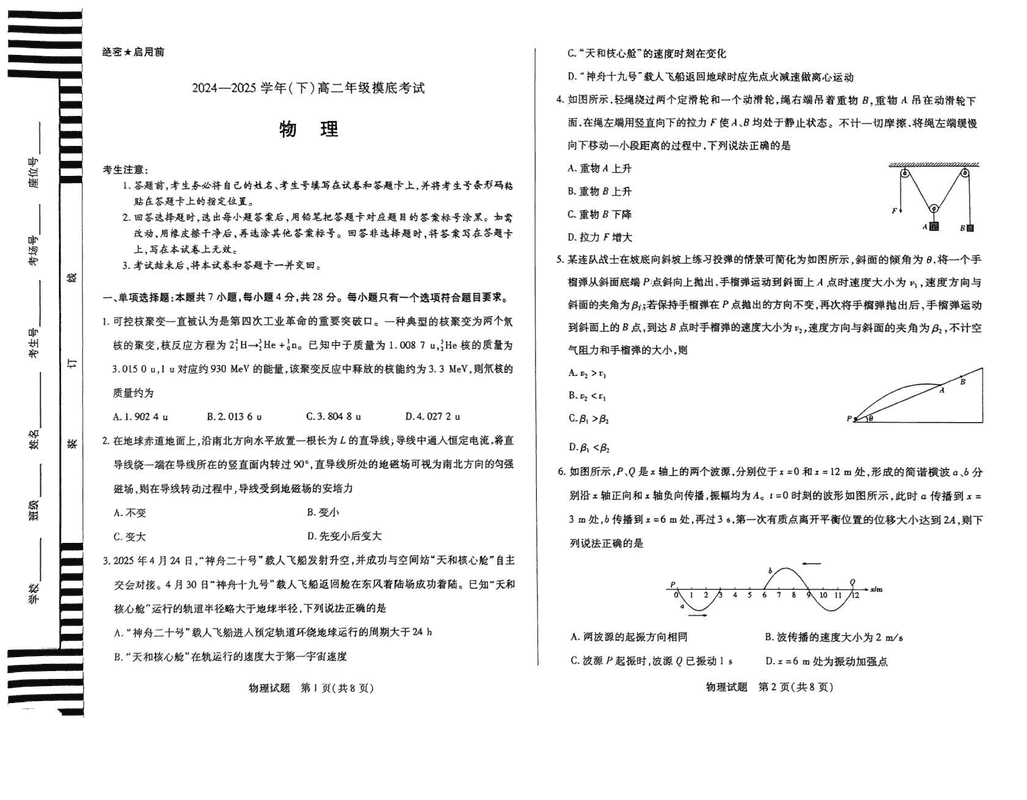 绝密★启用前
2024—2025 学年(下)高二年级摸底考试
物 理
考生注意:
1. 答题前,考生务必将自己的姓名、考生号填写在试卷和答题卡上,并将考生号条形码粘
贴在答题卡上的指定位置。
2. 回答选择题时,选出每小题答案后,用铅笔把答题卡对应题目的答案标号涂黑。如需
改动,用橡皮擦干净后,再选涂其他答案标号。回答非选择题时,将答案写在答题卡
上,写在本试卷上无效。
3. 考试结束后,将本试卷和答题卡一并交回。
一、单项选择题:本题共 7 小题,每小题 4 分,共 28 分。每小题只有一个选项符合题目要求。
1. 可控核聚变一直被认为是第四次工业革命的重要突破口。一种典型的核聚变为两个氘
核的聚变,核反应方程为 2²₁H→³₂He+¹₀n。已知中子质量为 1.008 7 u,³₂He 核的质量为
3.015 0 u,1 u 对应约 930 MeV 的能量,该聚变反应中释放的核能约为 3.3 MeV,则氘核的
质量约为
A. 1.902 4 u B. 2.013 6 u C. 3.804 8 u D. 4.027 2 u
2. 在地球赤道地面上,沿南北方向水平放置一根长为 L 的直导线,导线中通入恒定电流,将直
导线绕一端在导线所在的竖直面内转过 90°,直导线所处的地磁场可视为南北方向的匀强
磁场,则在导线转动过程中,导线受到地磁场的安培力
A. 不变 B. 变小
C. 变大 D. 先变小后变大
3. 2025 年 4 月 24 日,“神舟二十号”载人飞船发射升空,并成功与空间站“天和核心舱”自主
交会对接。4 月 30 日“神舟十九号”载人飞船返回舱在东风着陆场成功着陆。已知“天和
核心舱”运行的轨道半径略大于地球半径,下列说法正确的是
A. “神舟二十号”载人飞船进入预定轨道环绕地球运行的周期大于 24 h
B. “天和核心舱”在轨运行的速度大于第一宇宙速度
物理试题 第 1 页(共 8 页)
C. “天和核心舱”的速度时刻在变化
D. “神舟十九号”载人飞船返回地球时应先点火减速做离心运动
4. 如图所示,轻绳绕过两个定滑轮和一个动滑轮,绳右端吊着重物 B,重物 A 吊在动滑轮下
面,在绳左端用竖直向下的拉力 F 使 A、B 均处于静止状态。不计一切摩擦,将绳左端缓慢
向下移动一小段距离的过程中,下列说法正确的是
A. 重物 A 上升
B. 重物 B 上升
C. 重物 B 下降
D. 拉力 F 增大
F
A
B
5. 某连队战士在坡底向斜坡上练习投弹的情景可简化为如图所示,斜面的倾角为 θ,将一个手
榴弹从斜面底端 P 点斜向上抛出,手榴弹运动到斜面上 A 点时速度大小为 v₁,速度方向与
斜面的夹角为 β₁;若保持手榴弹在 P 点抛出的方向不变,再次将手榴弹抛出后,手榴弹运动
到斜面上的 B 点,到达 B 点时手榴弹的速度大小为 v₂,速度方向与斜面的夹角为 β₂,不计空
气阻力和手榴弹的大小,则
A. v₂>v₁
B. v₂<v₁
C. β₁>β₂
D. β₁<β₂
P
θ
A
B
6. 如图所示,P、Q 是 x 轴上的两个波源,分别位于 x=0 和 x=12 m 处,形成的简谐横波 a、b 分
别沿 x 轴正向和 x 轴负向传播,振幅均为 A。t=0 时刻的波形如图所示,此时 a 传播到 x=
3 m 处,b 传播到 x=6 m 处,再过 3 s,第一次有质点离开平衡位置的位移大小达到 2A,则下
列说法正确的是
b
P Q
0 1 2 3 4 5 6 7 8 9 10 11 12 x/m
a
A. 两波源的起振方向相同 B. 波传播的速度大小为 2 m/s
C. 波源 P 起振时,波源 Q 已振动 1 s D. x=6 m 处为振动加强点
物理试题 第 2 页(共 8 页)
座位号
考场号
考生号
姓名
班级
学校
线
订
装